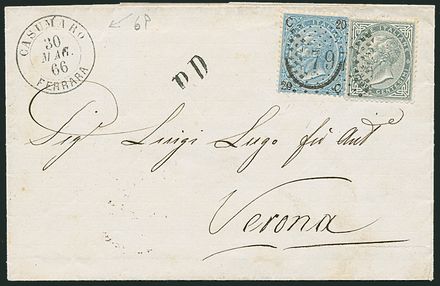 CASUMARO
30
MAG.
66
FERRARA
6A
P.D
C 20
79
20 C
Sigr Luigi Lugo fu Antº
Verona